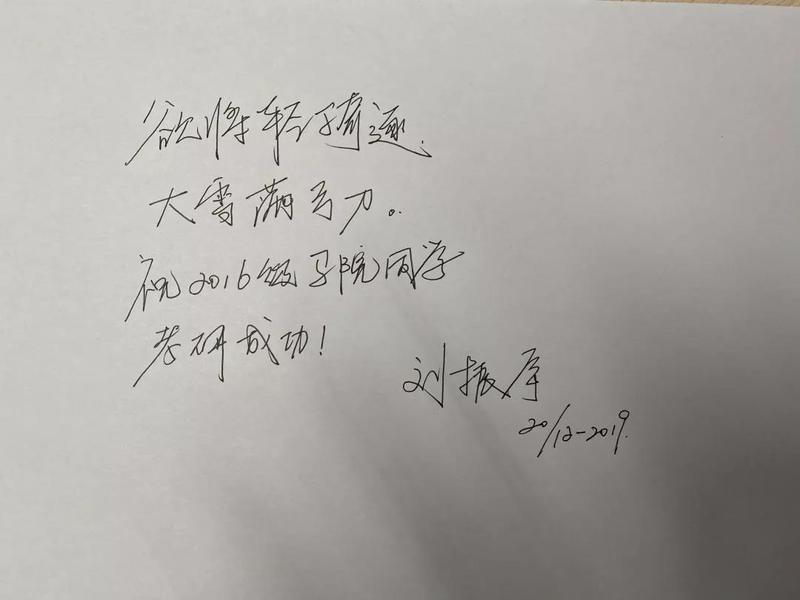 欲将轻骑逐,
大雪满弓刀。
祝2016级马院同学
考研成功!
刘振厚
20/12-2019.